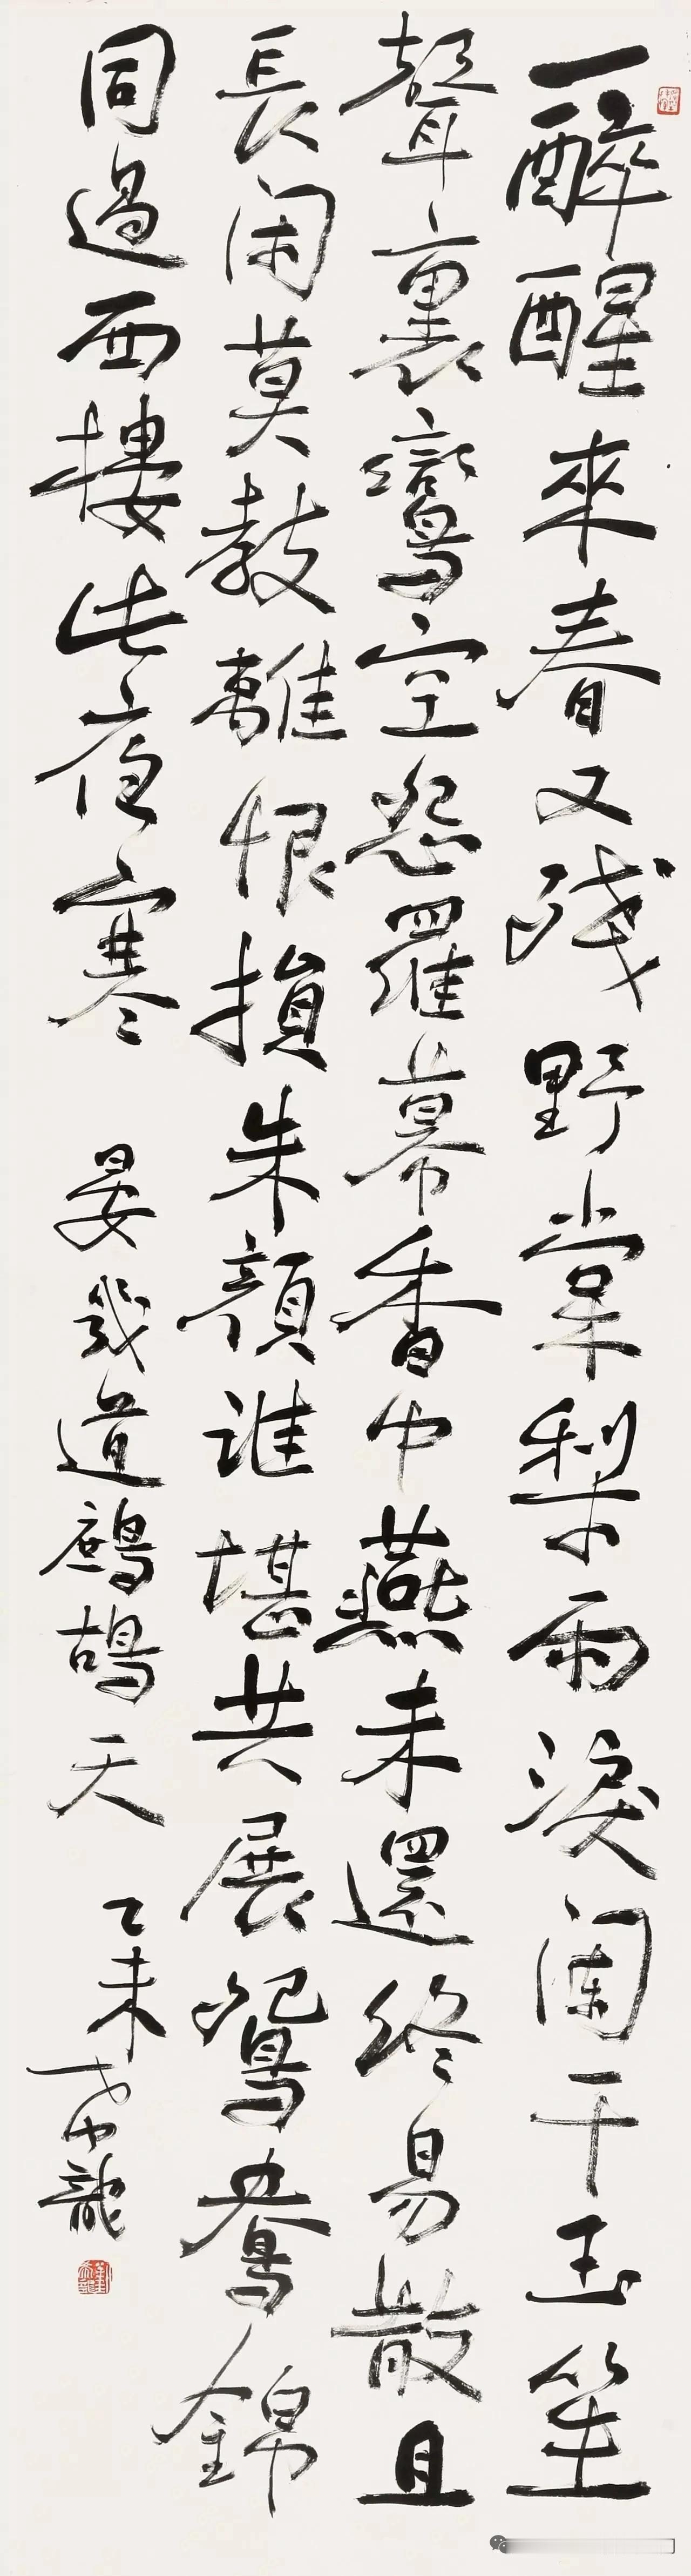 一醉醒來春又殘野棠梨雨淚闌干玉笙
聲裏鸞空怨羅幕香中燕未還終易散且
長閑莫教離恨損朱顏誰堪共展鴛鴦錦
同過西樓此夜寒
晏幾道鷓鴣天
乙未
龍